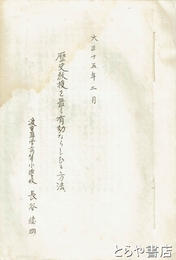 大正十五年二月
歴史教授を最も有効ならしむる方法
尋常高等小学校 長谷
とらや書店